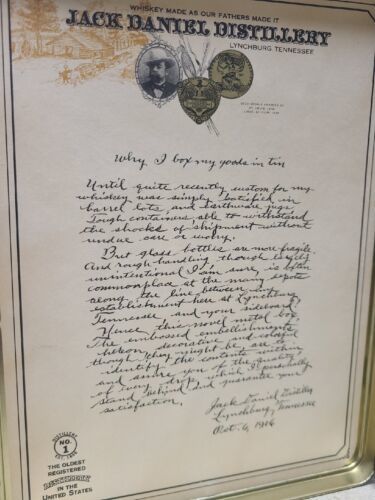 WHISKEY MADE AS OUR FATHERS MADE IT
JACK DANIEL DISTILLERY
LYNCHBURG TENNESSEE
Why I box my goods in tin
Until quite recently custom for my
whiskey was simply satisfied in
barrel lots and earthware jugs.
Tough containers, able to withstand
the shocks of shipment without
undue care or worry.
But glass bottles are more fragile
And rough handling though largely
unintentional I am sure, is often
commonplace at the many spots
along the line between my
establishment here at Lynchburg,
Tennessee and your sideboard.
Hence, this novel metal box.
The embossed embellishments
hereon, decorative and colorful
though they might be, are to
identify the contents within
and assure you of the quality,
of every drop, which I personally
stand behind and guarantee your
satisfaction.
Jack Daniel Distillery
Lynchburg, Tennessee
Oct. 6, 1906
DISTILLERY
NO.
1
THE OLDEST
REGISTERED
IN THE
UNITED STATES